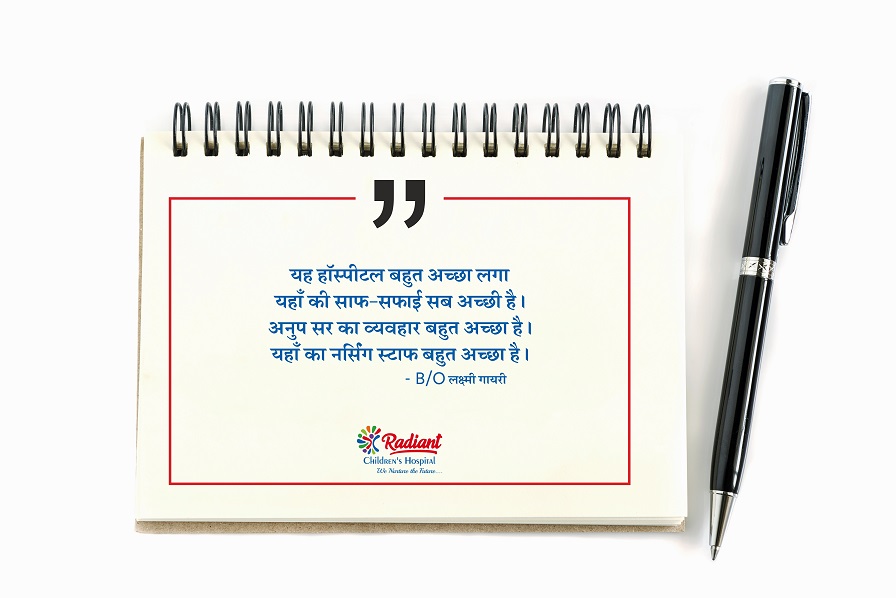 ”
यह हॉस्पीटल बहुत अच्छा लगा
यहाँ की साफ-सफाई सब अच्छी है।
अनुप सर का व्यवहार बहुत अच्छा है।
यहाँ का नर्सिंग स्टाफ बहुत अच्छा है।
- B/O लक्ष्मी गायरी
Radiant
Children's Hospital
We Nurture the Future....